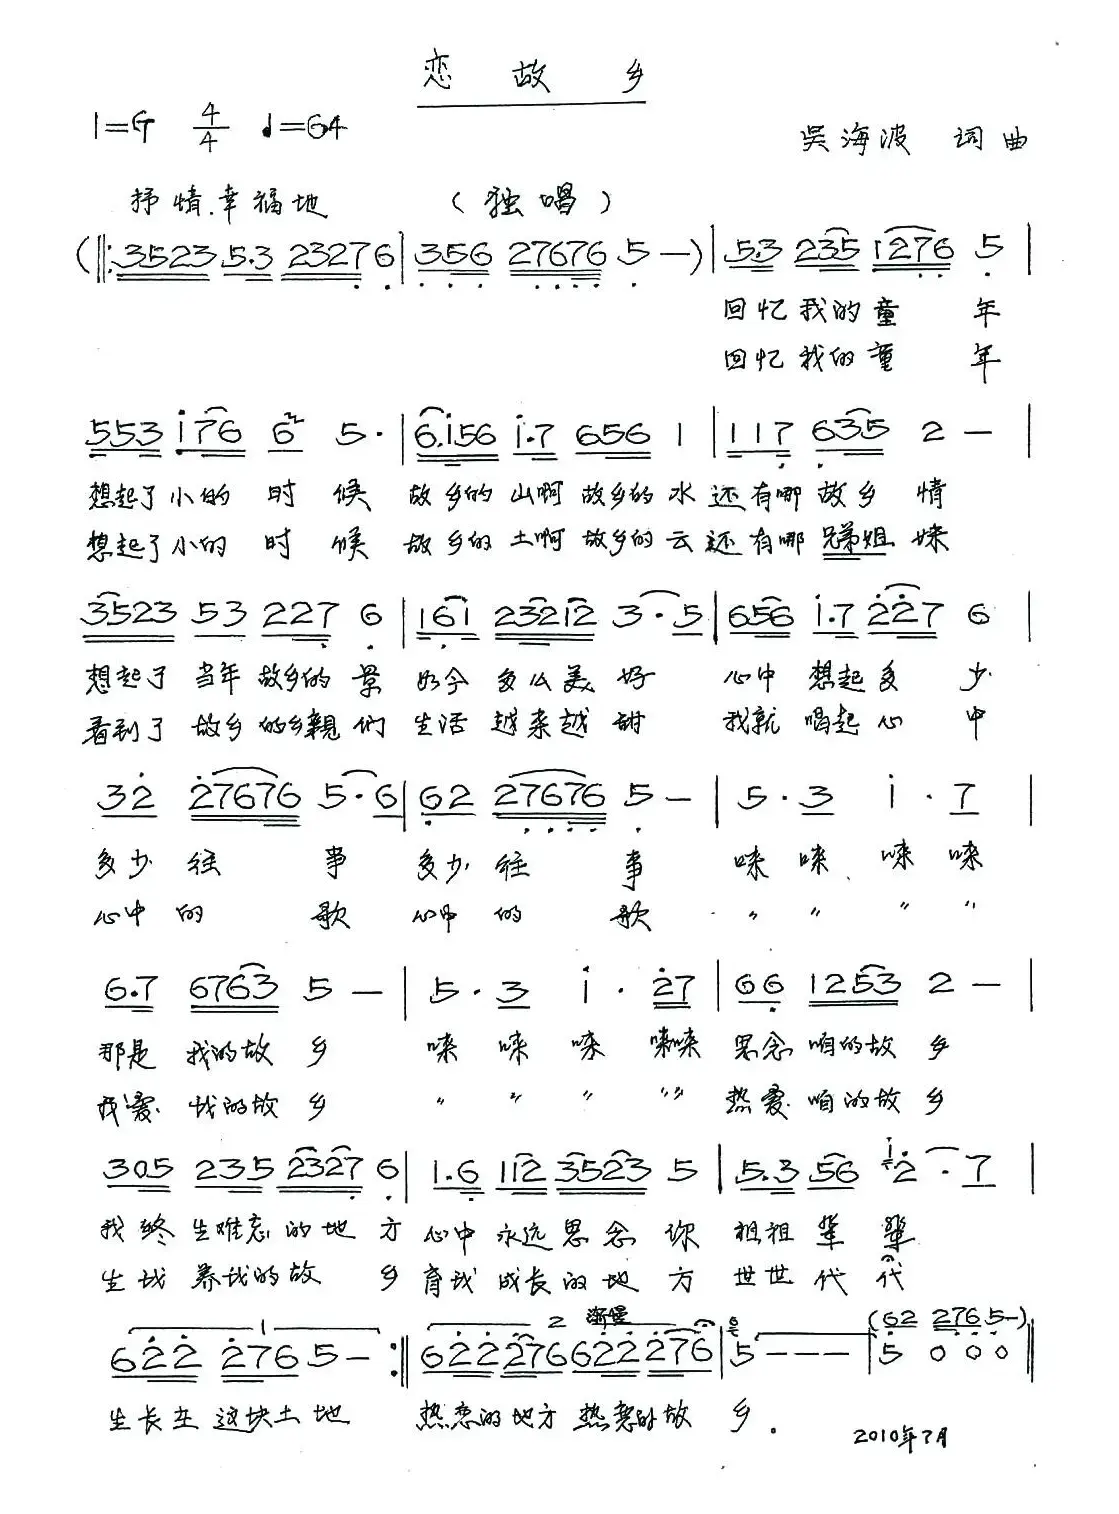 恋故乡
1=G 4/4 ♩=64
吴海波 词曲
抒情.幸福地 (独唱)
(‖: 3523 5.3 23276 | 356 27676 5 —) | 5.3 235 1276 5 |
回忆我的童年
回忆我的童年
553 176 6 5· | 6.156 1.7 656 1 | 117 635 2 — |
想起了小的时候 故乡的山啊故乡的水还有哪故乡情
想起了小的时候 故乡的土啊故乡的云还有哪兄弟姐妹
3523 53 227 6 | 161 23212 3·5 | 656 1.7 227 6 |
想起了当年故乡的景 如今多么美好 心中想起多少
看到了故乡的乡親们 生活越来越甜 我就唱起心中
32 27676 5·6 | 62 27676 5 — | 5·3 1·7 |
多少往事 多少往事 唻唻唻唻
心中的歌 心中的歌 〃 〃 〃 〃
6.7 6763 5 — | 5·3 1·27 | 66 1253 2 — |
那是我的故乡 唻唻唻唻唻 思念咱的故乡
我爱我的故乡 〃 〃 〃 〃〃 热爱咱的故乡
305 235 2327 6 | 1.6 112 3523 5 | 5.3 56 1 2·7 |
我终生难忘的地方 心中永远思念你 祖祖辈辈
生我养我的故乡 育我成长的地方 世世代代
1 2 渐慢 (62 276 5—)
622 276 5 — :‖ 622 276 622 276 | 6 5 — — — | 5 0 0 0 ‖
生长在这块土地 热恋的地方热恋的故乡。
2010年7月